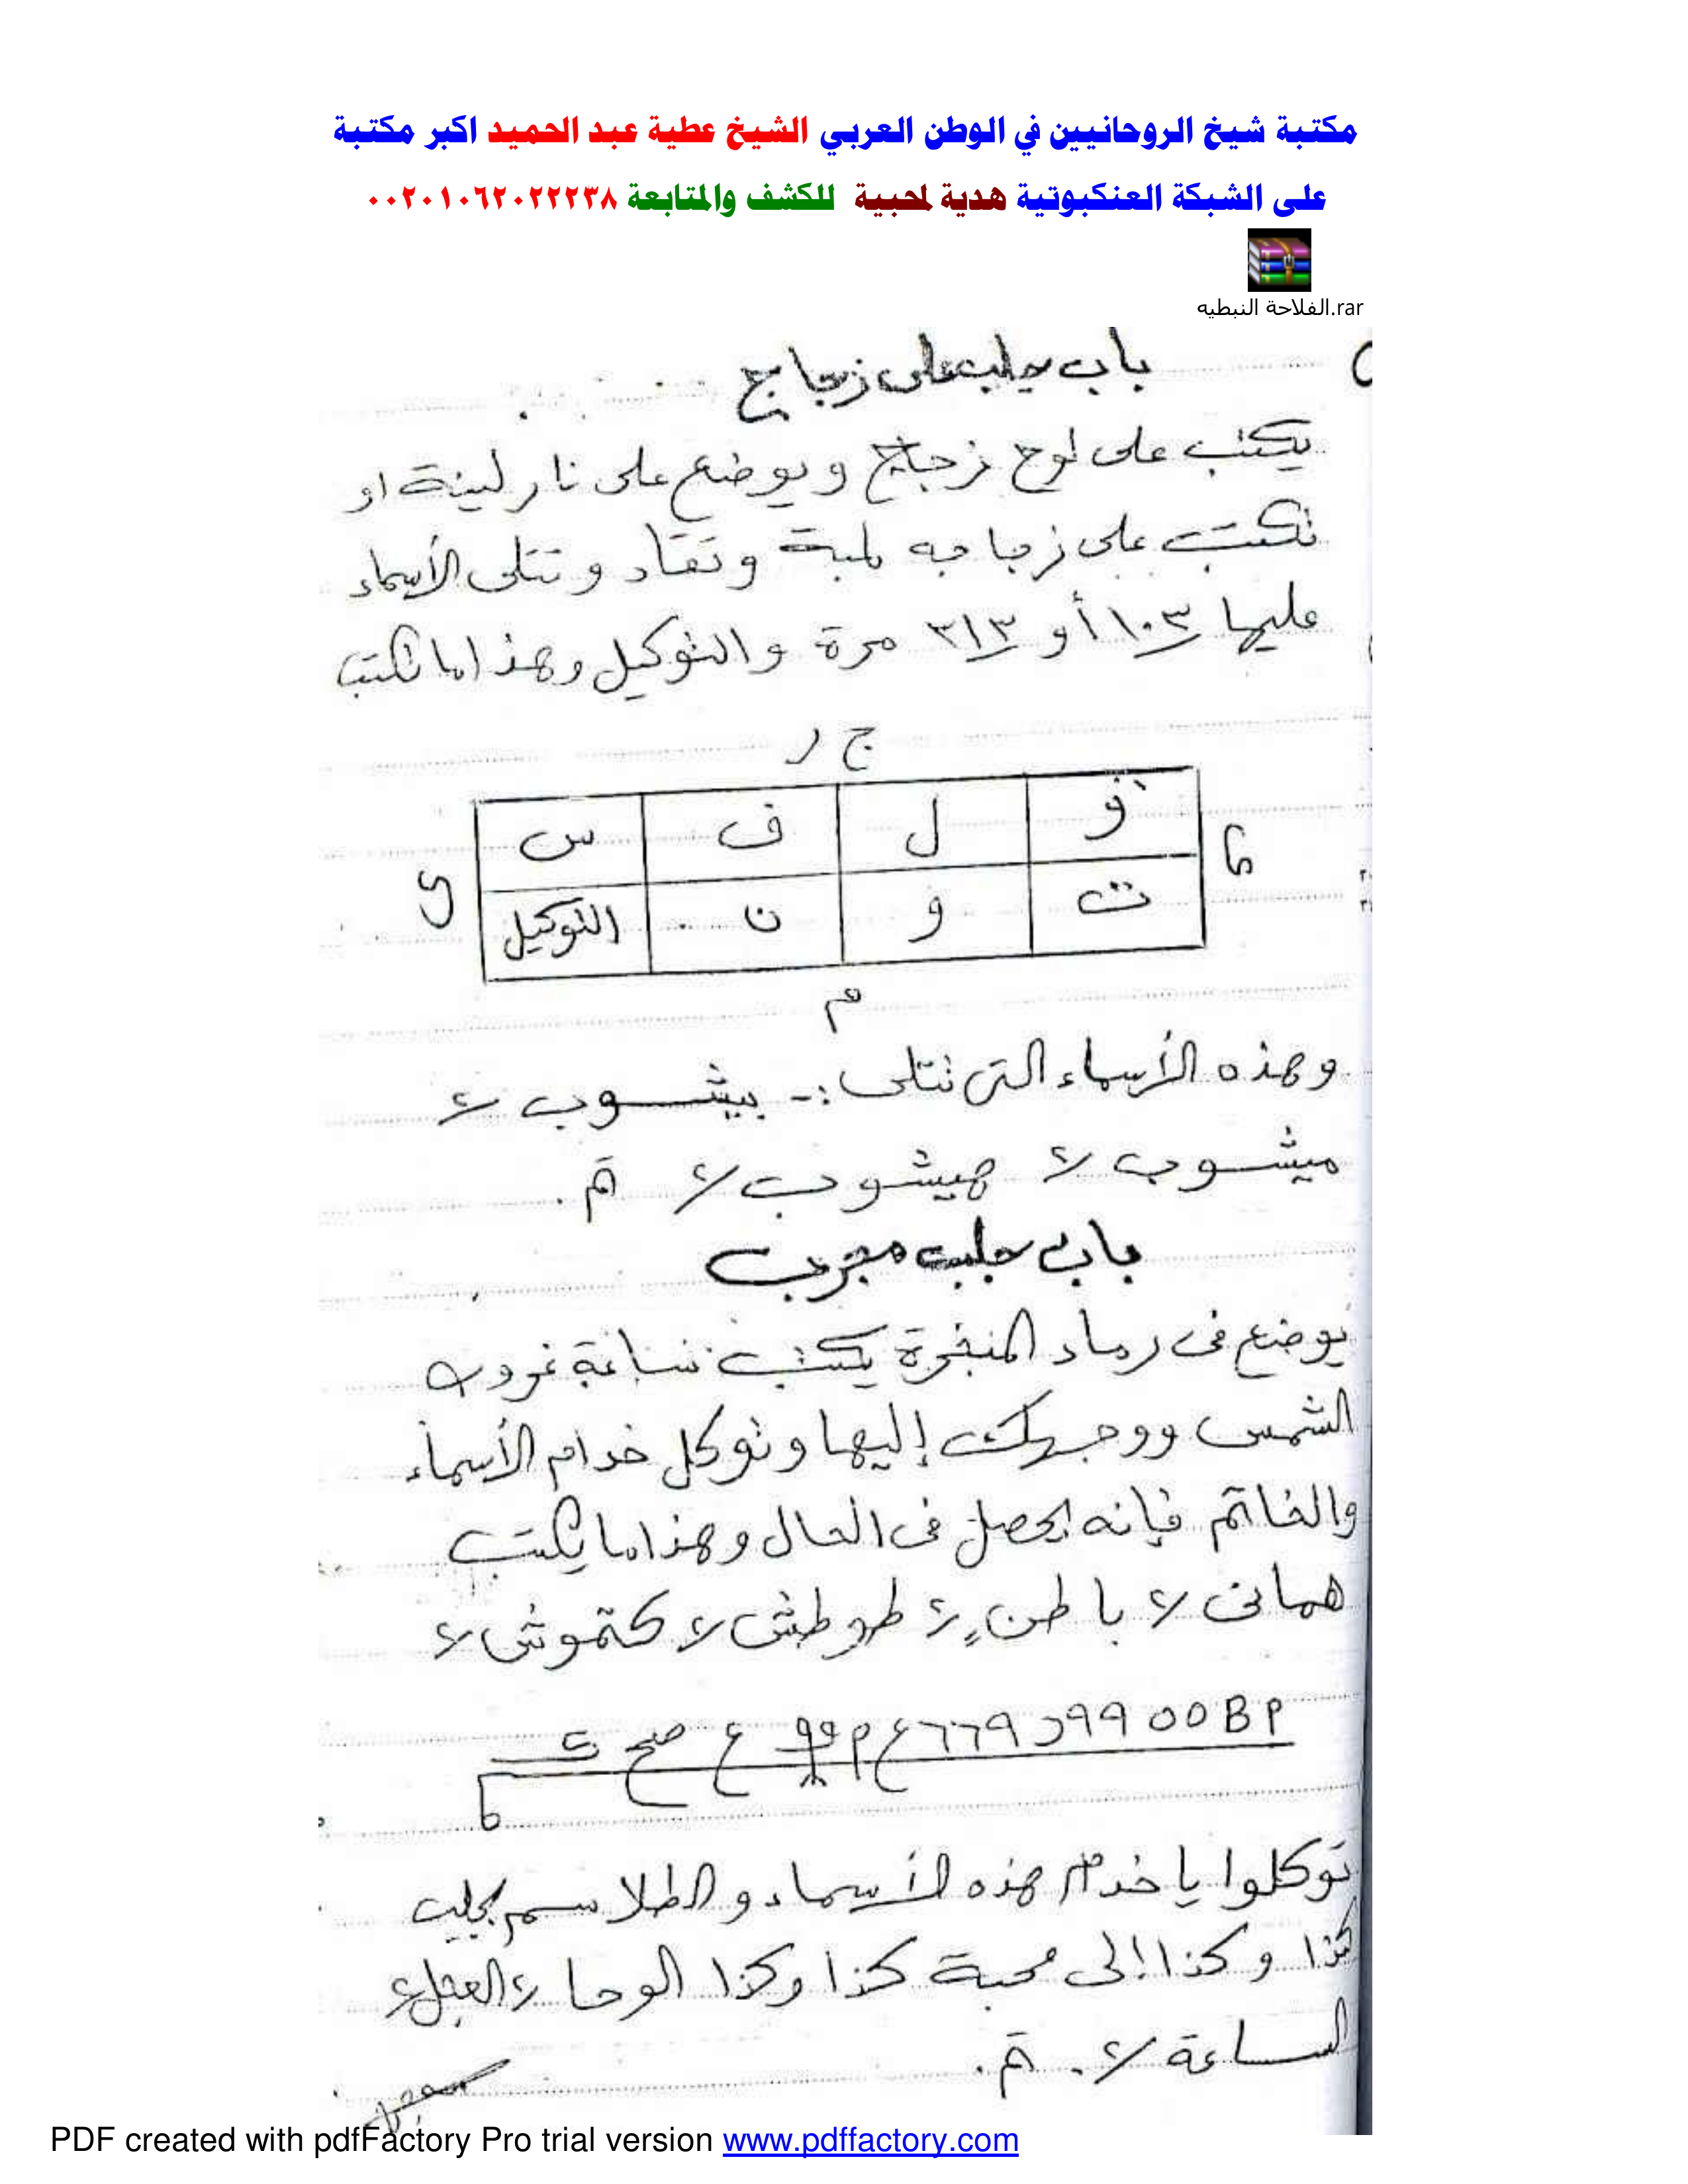 مكتبة شيخ الروحانيين في الوطن العربي الشيخ عطية عبد الحميد اكبر مكتبة
على الشبكة العنكبوتية هدية لمحبيية للكشف والمتابعة ٠٠٢٠١٠٦٢٠٢٢٢٣٨
الفلاحة النبطيه.rar
باب جلب على زجاج
يكتب على لوح زجاج ويوضع على نار لينة او
تكتب على زجاجه لمبة وتقاد وتتلى الأسماء
عليها ١٠٣ أو ٣١٣ مرة والتوكيل وهذا ما تكتب
ج ر
و ل ف س
ت و ن التوكيل
ى
م
وهذه الأسماء التى تتلى :- بيشوب ٢
ميشوب ٢ هيشوب ٢ تم .
باب جلب مجرب
يوضع فى رماد المنخرة يكتب ساعة غروب
الشمس ووجهك إليها وتوكل خدام الأسماء
والخاتم فإنه يحصل فى الحال وهذا ما يكتب
همانى ٢ باطن ٢ طوطش ٢ كتموش ٢
توكلوا يا خدام هذه الأسماء والطلاسم بجلب
كذا وكذا إلى محبة كذا وكذا الوحا ٢ العجل ٢
الساعة ٢ . تم .
PDF created with pdfFactory Pro trial version www.pdffactory.com